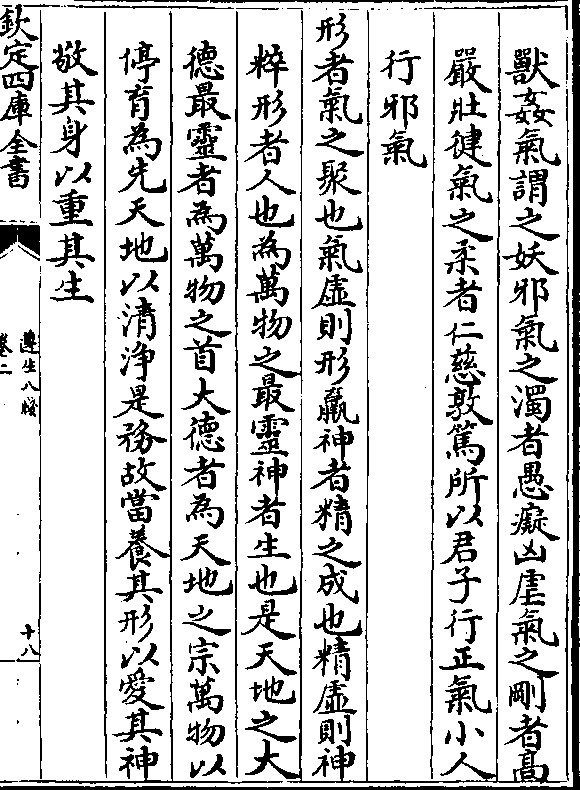 獸姦氣謂之妖邪氣之濁者愚癡凶虐氣之剛者高
嚴壯健氣之柔者仁慈敦篤所以君子行正氣小人
行邪氣
形者氣之聚也氣虛則形羸神者精之成也精虛則神
粹形者人也為萬物之最靈神者生也是天地之大
德最靈者為萬物之首大德者為天地之宗萬物以
停育為先天地以清淨是務故當養其形以愛其神
敬其身以重其生
欽定四庫全書
遵生八牋
卷二
十八